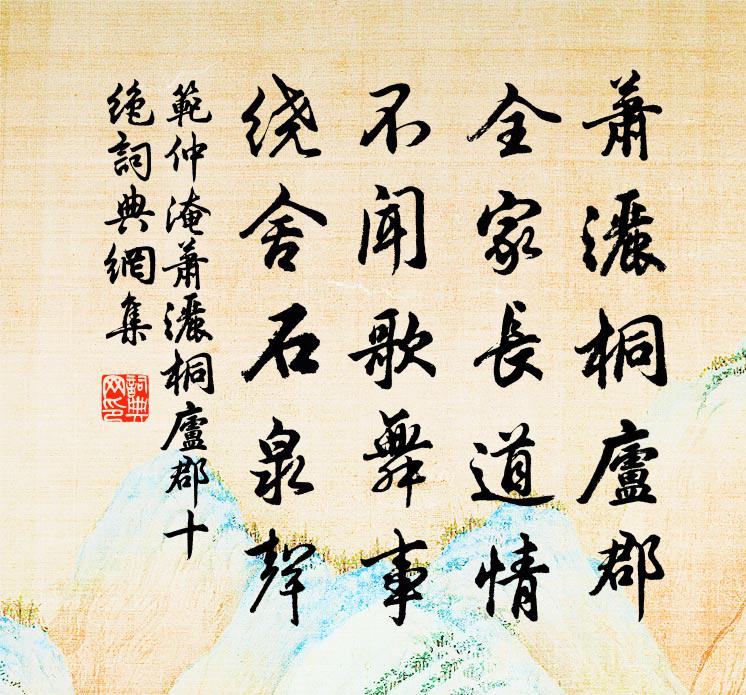 蕭灑桐廬郡
全家長道情
不聞歌舞事
繞舍石泉聲
範仲淹蕭灑桐廬郡十
絶詞典網集
詞典
网印